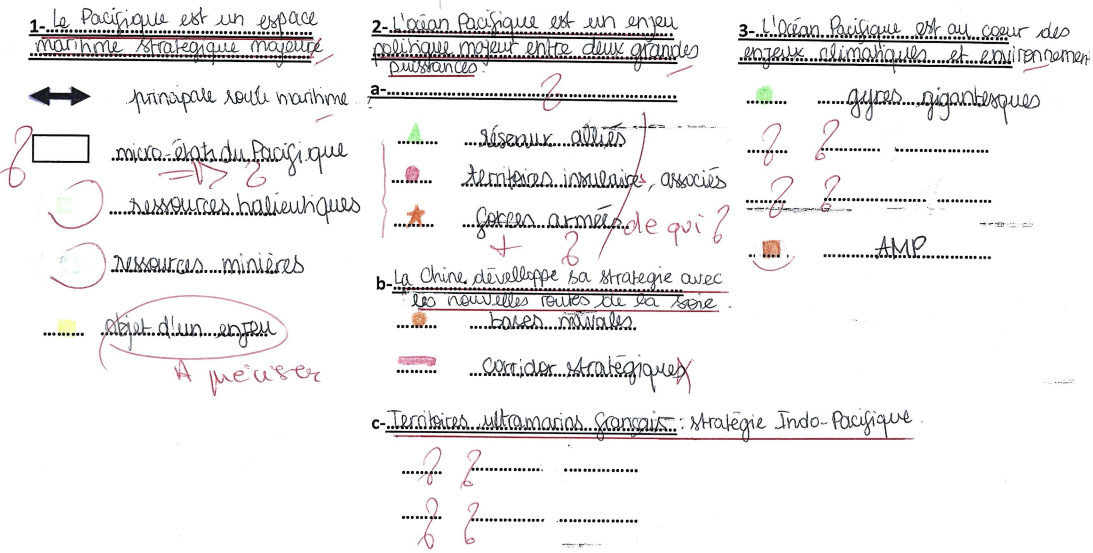 1- Le Pacifique est un espace
maritime stratégique majeure
principale route maritime
? micro-états du Pacifique
?
ressources halieutiques
ressources minières
objet d'un enjeu
A préciser
2- L'océan Pacifique est un enjeu
politique majeur entre deux grandes
puissances.
a- ?
réseaux alliés
territoires insulaires, associés
forces armées de qui ?
+ ?
b- La Chine dévelloppe sa stratégie avec
les nouvelles routes de la soie.
bases navales
corridor stratégiques
c- Territoires ultramarins français : stratégie Indo-Pacifique.
? ?
? ?
3- L'Océan Pacifique est au coeur des
enjeux climatiques et environnemen
gyres gigantesques
? ?
? ?
AMP